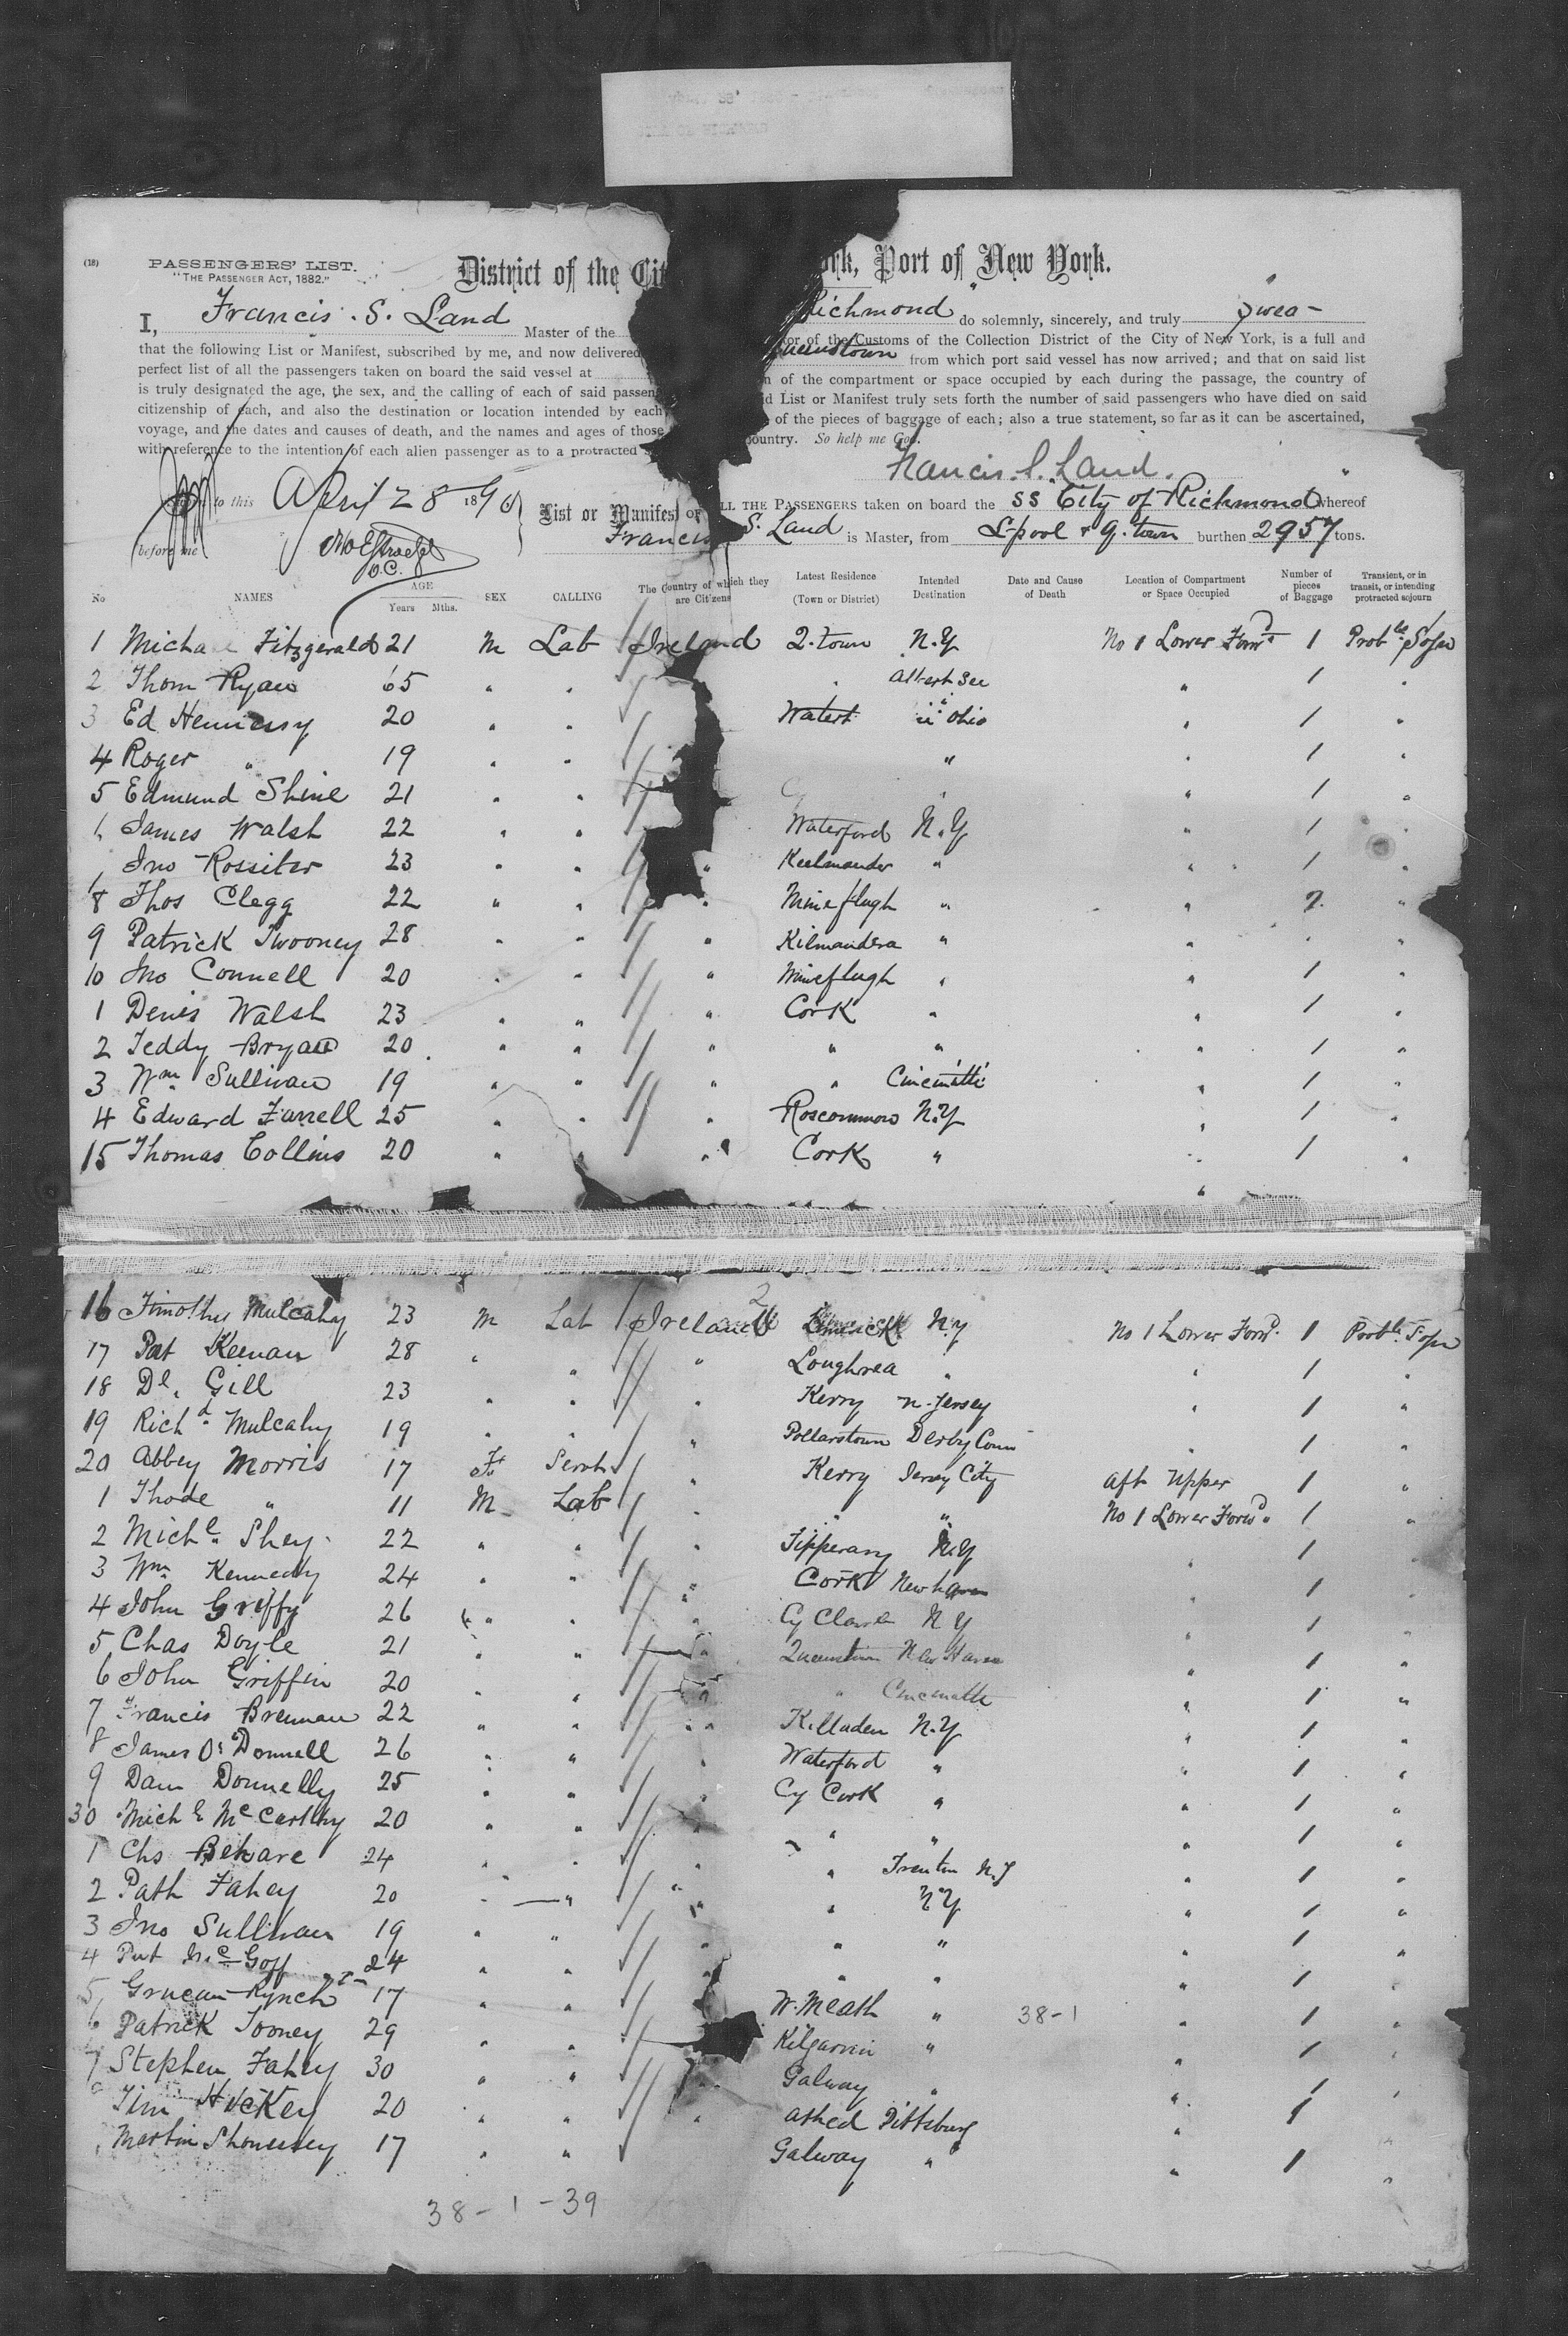 (18) PASSENGERS' LIST.
"THE PASSENGER ACT, 1882."
District of the Cit ork, Port of New York.
I, Francis S. Land Master of the Richmond do solemnly, sincerely, and truly Swea-
that the following List or Manifest, subscribed by me, and now delivered tor of the Customs of the Collection District of the City of New York, is a full and
perfect list of all the passengers taken on board the said vessel at Queenstown from which port said vessel has now arrived; and that on said list
is truly designated the age, the sex, and the calling of each of said passen n of the compartment or space occupied by each during the passage, the country of
citizenship of each, and also the destination or location intended by each id List or Manifest truly sets forth the number of said passengers who have died on said
voyage, and the dates and causes of death, and the names and ages of those of the pieces of baggage of each; also a true statement, so far as it can be ascertained,
with reference to the intention of each alien passenger as to a protracted country. So help me God.
Francis S. Land.
to this April 28 1890
before me
D.C.
List or Manifest OF LL THE PASSENGERS taken on board the SS City of Richmond whereof
Francis S. Land is Master, from L-pool & Q.town burthen 2957 tons.
No NAMES AGE Years Mths. SEX CALLING The Country of which they are Citizens Latest Residence (Town or District) Intended Destination Date and Cause of Death Location of Compartment or Space Occupied Number of pieces of Baggage Transient, or in transit, or intending protracted sojourn
1 Michael Fitzgerald 21 M Lab Ireland Q.town N.Y No 1 Lower Forwd 1 Probly Sojn
2 Thom Ryan 65 " " " Albert Sec " 1 "
3 Ed Hennessy 20 " " Waterf " Ohio " 1 "
4 Roger " 19 " " " " 1 "
5 Edmund Shine 21 " " " " 1 "
6 James Walsh 22 " " Waterford N.Y " 1 "
Jno Rossiter 23 " " " " " 1 "
8 Thos Clegg 22 " " " " " 2 "
9 Patrick Twooney 28 " " " Kilmandera " " "
10 Jno Connell 20 " " " " " 1 "
1 Denis Walsh 23 " " " Cork " " 1 "
2 Teddy Bryan 20 " " " " " " 1 "
3 Wm Sullivan 19 " " " " Cincinatti " 1 "
4 Edward Farrell 25 " " " Roscommon N.Y " 1 "
15 Thomas Collins 20 " " " Cork " " 1 "
16 Timothy Mulcahy 23 M Lab Ireland Limerick N.Y No 1 Lower Forwd. 1 Probly Sojn
17 Pat Keenan 28 " " " Loughrea " " 1 "
18 Dl. Gill 23 " " " Kerry N. Jersey " 1 "
19 Richd Mulcahy 19 " " " Pollarstown Derby Conn " 1 "
20 Abbey Morris 17 F Servt " Kerry Jersey City Aft Upper 1 "
1 Thode " 11 M Lab " " " No 1 Lower Forwd. 1 "
2 Michl. Shey 22 " " " Tipperary N.Y " 1 "
3 Wm Kennedy 24 " " " Cork New haven " 1 "
4 John Griffy 26 " " " Cy Clare N Y " 1 "
5 Chas Doyle 21 " " " Queenstown New Haven " 1 "
6 John Griffin 20 " " " " Cincinatti " 1 "
7 Francis Brennan 22 " " " Killaden N.Y " 1 "
8 James O'Donnell 26 " " " Waterford " " 1 "
9 Dan Donnelly 25 " " " Cy Cork " " 1 "
30 Michl McCarthy 20 " " " " " " 1 "
1 Chs Behare 24 " " " " Trenton N.J " 1 "
2 Path Fahey 20 " " " " N.Y " 1 "
3 Jno Sullivan 19 " " " " " " 1 "
4 Pat McGoff 24 " " " " " " 1 "
5 Lynch 17 " " W. Meath " 38-1 " 1 "
6 Patrick Tooney 29 " " Kilgarvin " " 1 "
7 Stephen Fahey 30 " " Galway " " 1 "
Tim Hickey 20 " " " Pittsburg " 1 "
Martin Shonessey 17 " " Galway " " 1 "
38-1-39